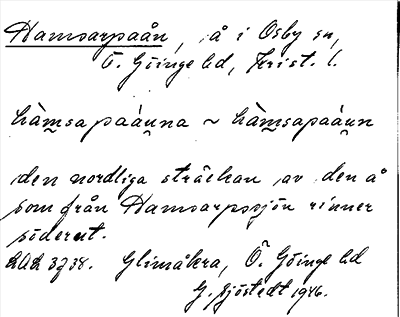 Hamsarpaån, å i Osby sn,
Ö. Göinge hd, Krist. l.
hàmsapaáuna ~ hàmsapaáun
den nordliga sträckan av den å
som från Hamsarpssjön rinner
söderut.
LAL 3238. Glimåkra, Ö. Göinge hd
G. Sjöstedt 1946.